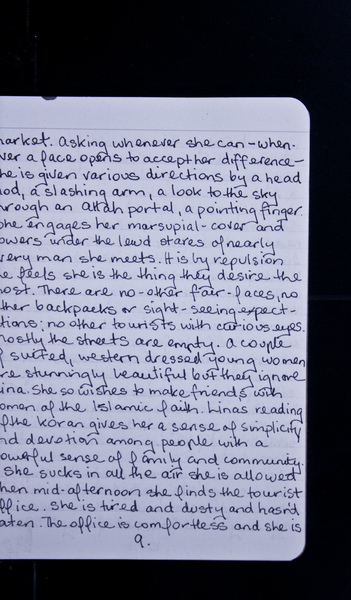 arket. Asking whenever she can - when-
ver a face opens to accept her difference -
he is given various directions by a head
od, a slashing arm, a look to the sky
hrough an Allah portal, a pointing finger.
he engages her marsupial-cover and
owers under the lewd stares of nearly
very man she meets. It is by repulsion
e feels she is the thing they desire the
ost. There are no-other fair-faces, no
ther backpacks or sight-seeing-expect-
tions; no other tourists with curious eyes.
ostly the streets are empty. A couple
f suited, western dressed young women
re stunningly beautiful but they ignore
ina. She so wishes to make friends with
omen of the Islamic faith. Linas reading
f the Koran gives her a sense of simplicity
nd devotion among people with a
owerful sense of family and community.
She sucks in all the air she is allowed
hen mid-afternoon she finds the tourist
ffice. She is tired and dusty and hasn't
aten. The office is comfortless and she is
9.